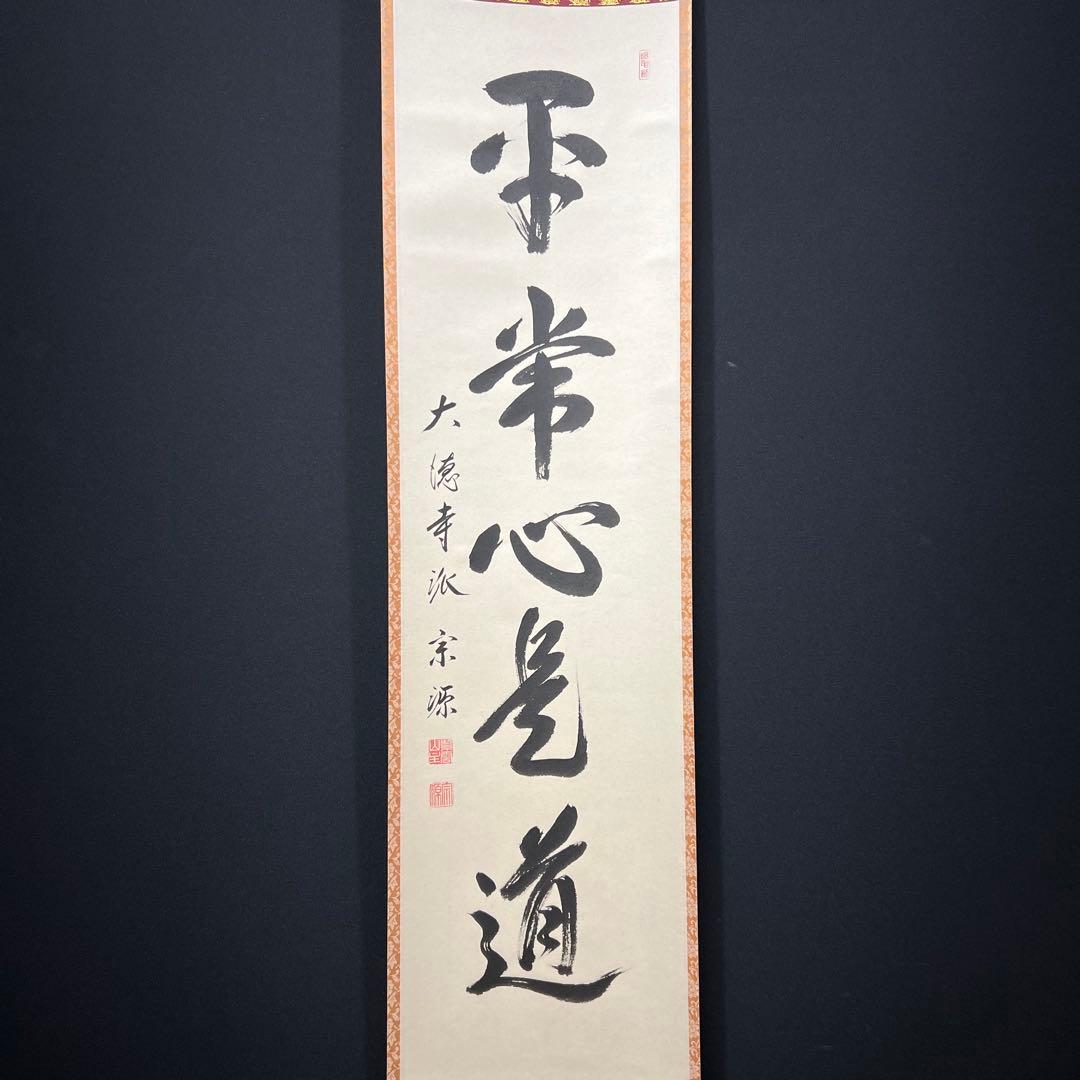 平常心是道
大徳寺派 宗源